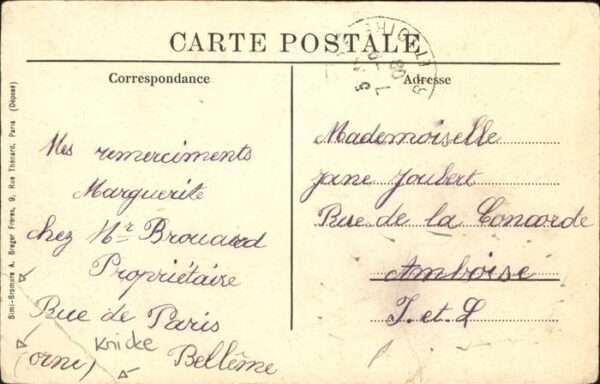 CARTE POSTALE
Correspondance
Mes remerciments
Marguerite
chez Mr Brouard
Propriétaire
Rue de Paris
(orne) Knicke Bellême
Adresse
Mademoiselle
Jane Joubert
Rue de la Concorde
Amboise
I. et L
Simi-Bromure A. Breger Frères, 9, Rue Thénard, Paris (Déposé)